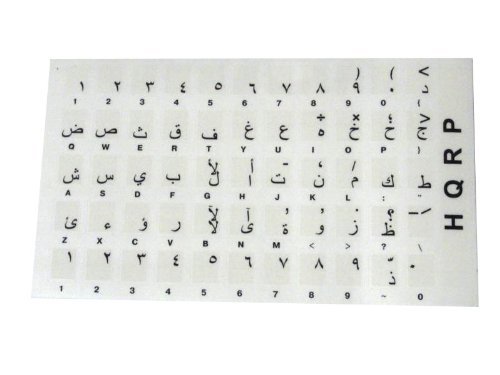 ) ( <
١ ٢ ٣ ٤ ٥ ٦ ٧ ٨ ٩ ٠ د
1 2 3 4 5 6 7 8 9 0 {
÷ × ؛ >
ض ص ث ق ف غ ع ه خ ح ج
Q W E R T Y U I O P }
لأ أ - ، /
ش س ي ب ل ا ت ن م ك ط
A S D F G H J K L : "
لآ آ ' , . ؟ - \
ئ ء ؤ ر لا ى ة و ز ظ
Z X C V B N M < > ? \
١ ٢ ٣ ٤ ٥ ٦ ٧ ٨ ٩ ذّ ٠
1 2 3 4 5 6 7 8 9 ~ 0
HQRP